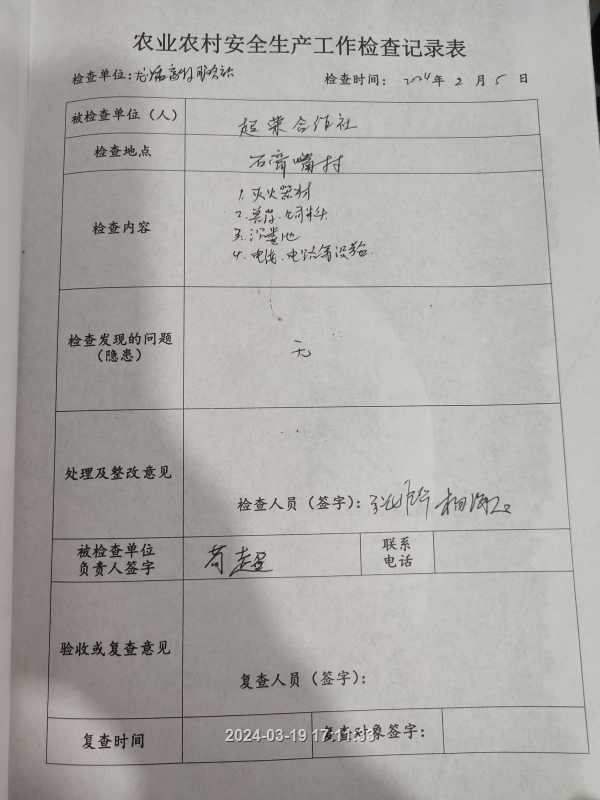 农业农村安全生产工作检查记录表
检查单位：
检查时间： 2024年 2 月 5 日
被检查单位（人） 超荣合作社
检查地点 石膏嘴村
检查内容
1. 灭火器材
2.
3. 沼粪池
4. 电线、电路等设施
检查发现的问题
（隐患）
无
处理及整改意见
检查人员（签字）：
被检查单位
负责人签字
苟超
联系
电话
验收或复查意见
复查人员（签字）：
复查时间
复查对象签字：
2024-03-19 17:11:53